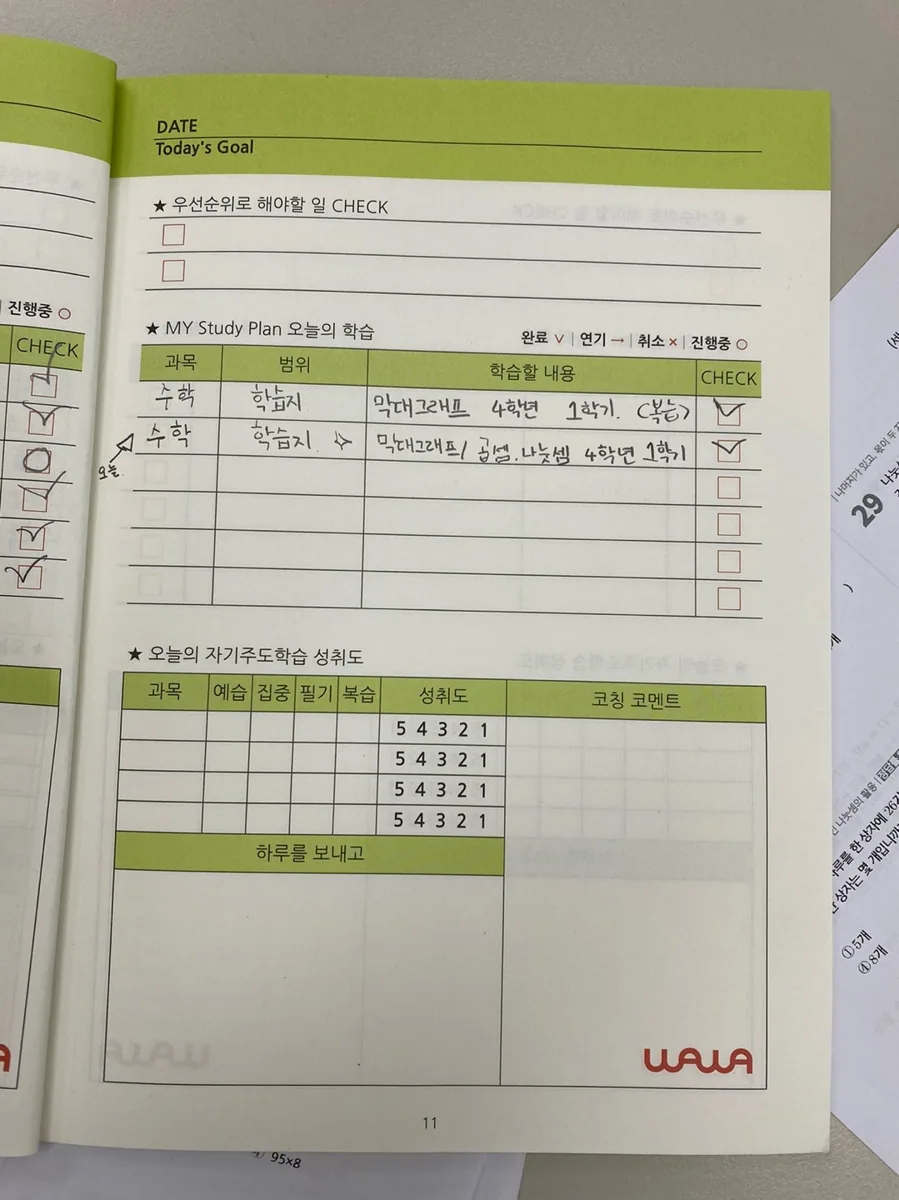 DATE
Today's Goal
★ 우선순위로 해야할 일 CHECK
★ MY Study Plan 오늘의 학습
완료 ∨ | 연기 → | 취소 × | 진행중 ○
과목 범위 학습할 내용 CHECK
수학 학습지 막대그래프 4학년 1학기. (복습)
수학 학습지 막대그래프/ 곱셈.나눗셈 4학년 1학기
오늘.
★ 오늘의 자기주도학습 성취도
과목 예습 집중 필기 복습 성취도 코칭 코멘트
5 4 3 2 1
5 4 3 2 1
5 4 3 2 1
5 4 3 2 1
하루를 보내고
WAWA
11
진행중 ○
CHECK
29
①5개
④8개
95x8